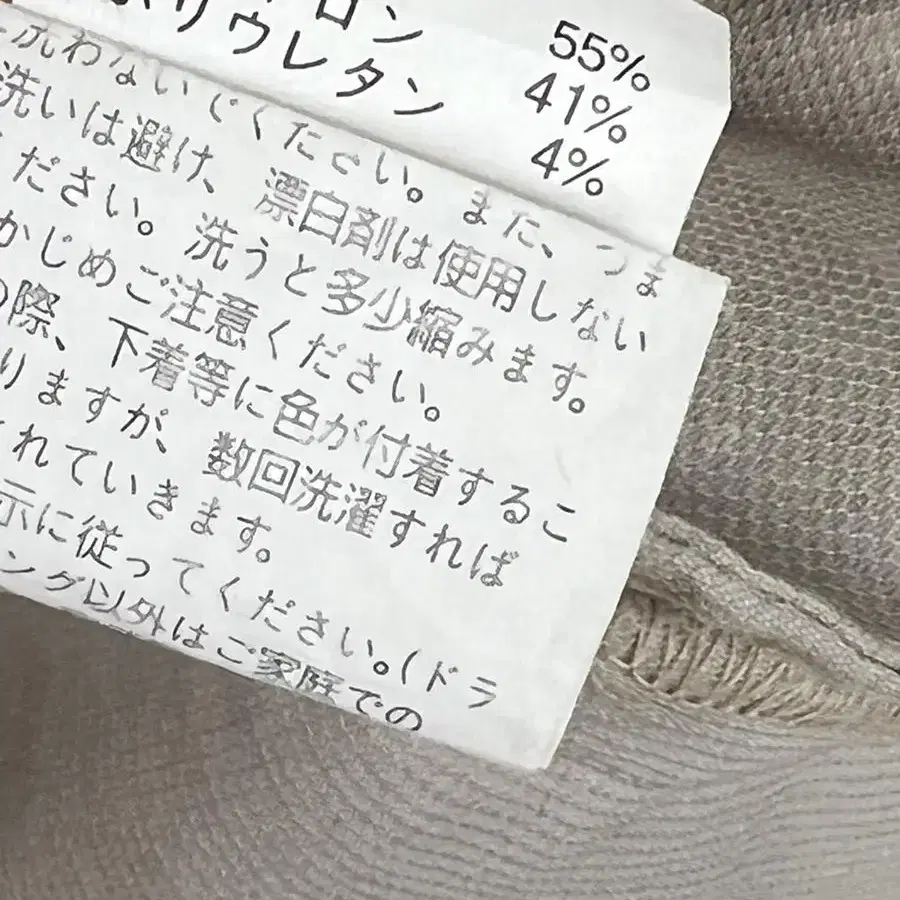 55%
ロン 41%
ポリウレタン 4%
洗わないでください。また、つま
洗いは避け、漂白剤は使用しない
ください。洗うと多少縮みます。
かじめご注意ください。
の際、下着等に色が付着するこ
りますが、数回洗濯すれば
れていきます。
示に従ってください。(ドラ
ング以外はご家庭での